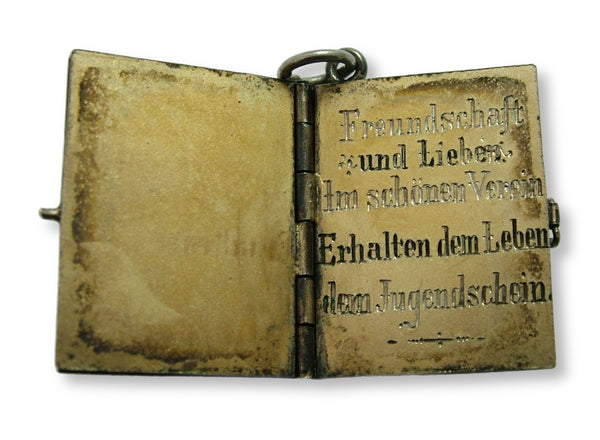 Freundschaft
und Liebe
Im schönen Verein
Erhalten dem Leben
dem Jugendschein.